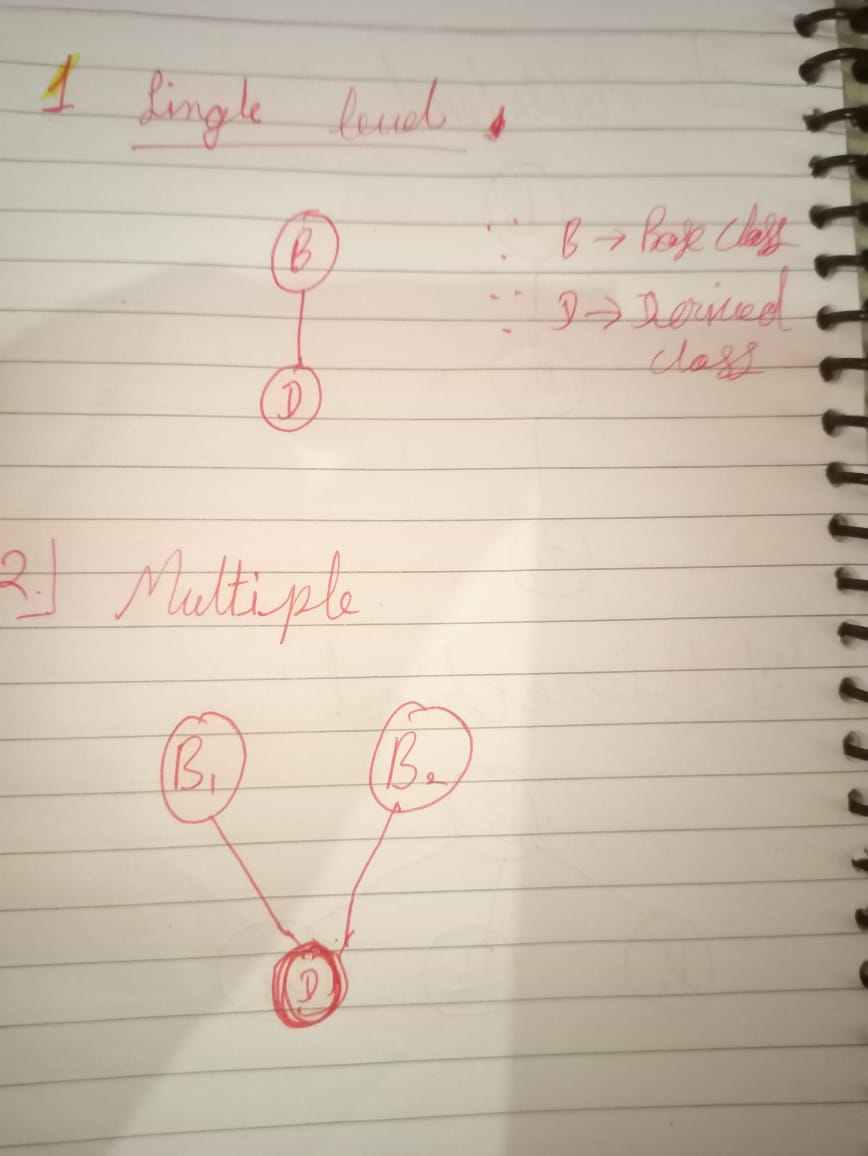 1 Single level
B
∵ B → Base class
∵ D → Derived
class
D
2.] Multiple
B₁ B₂
D